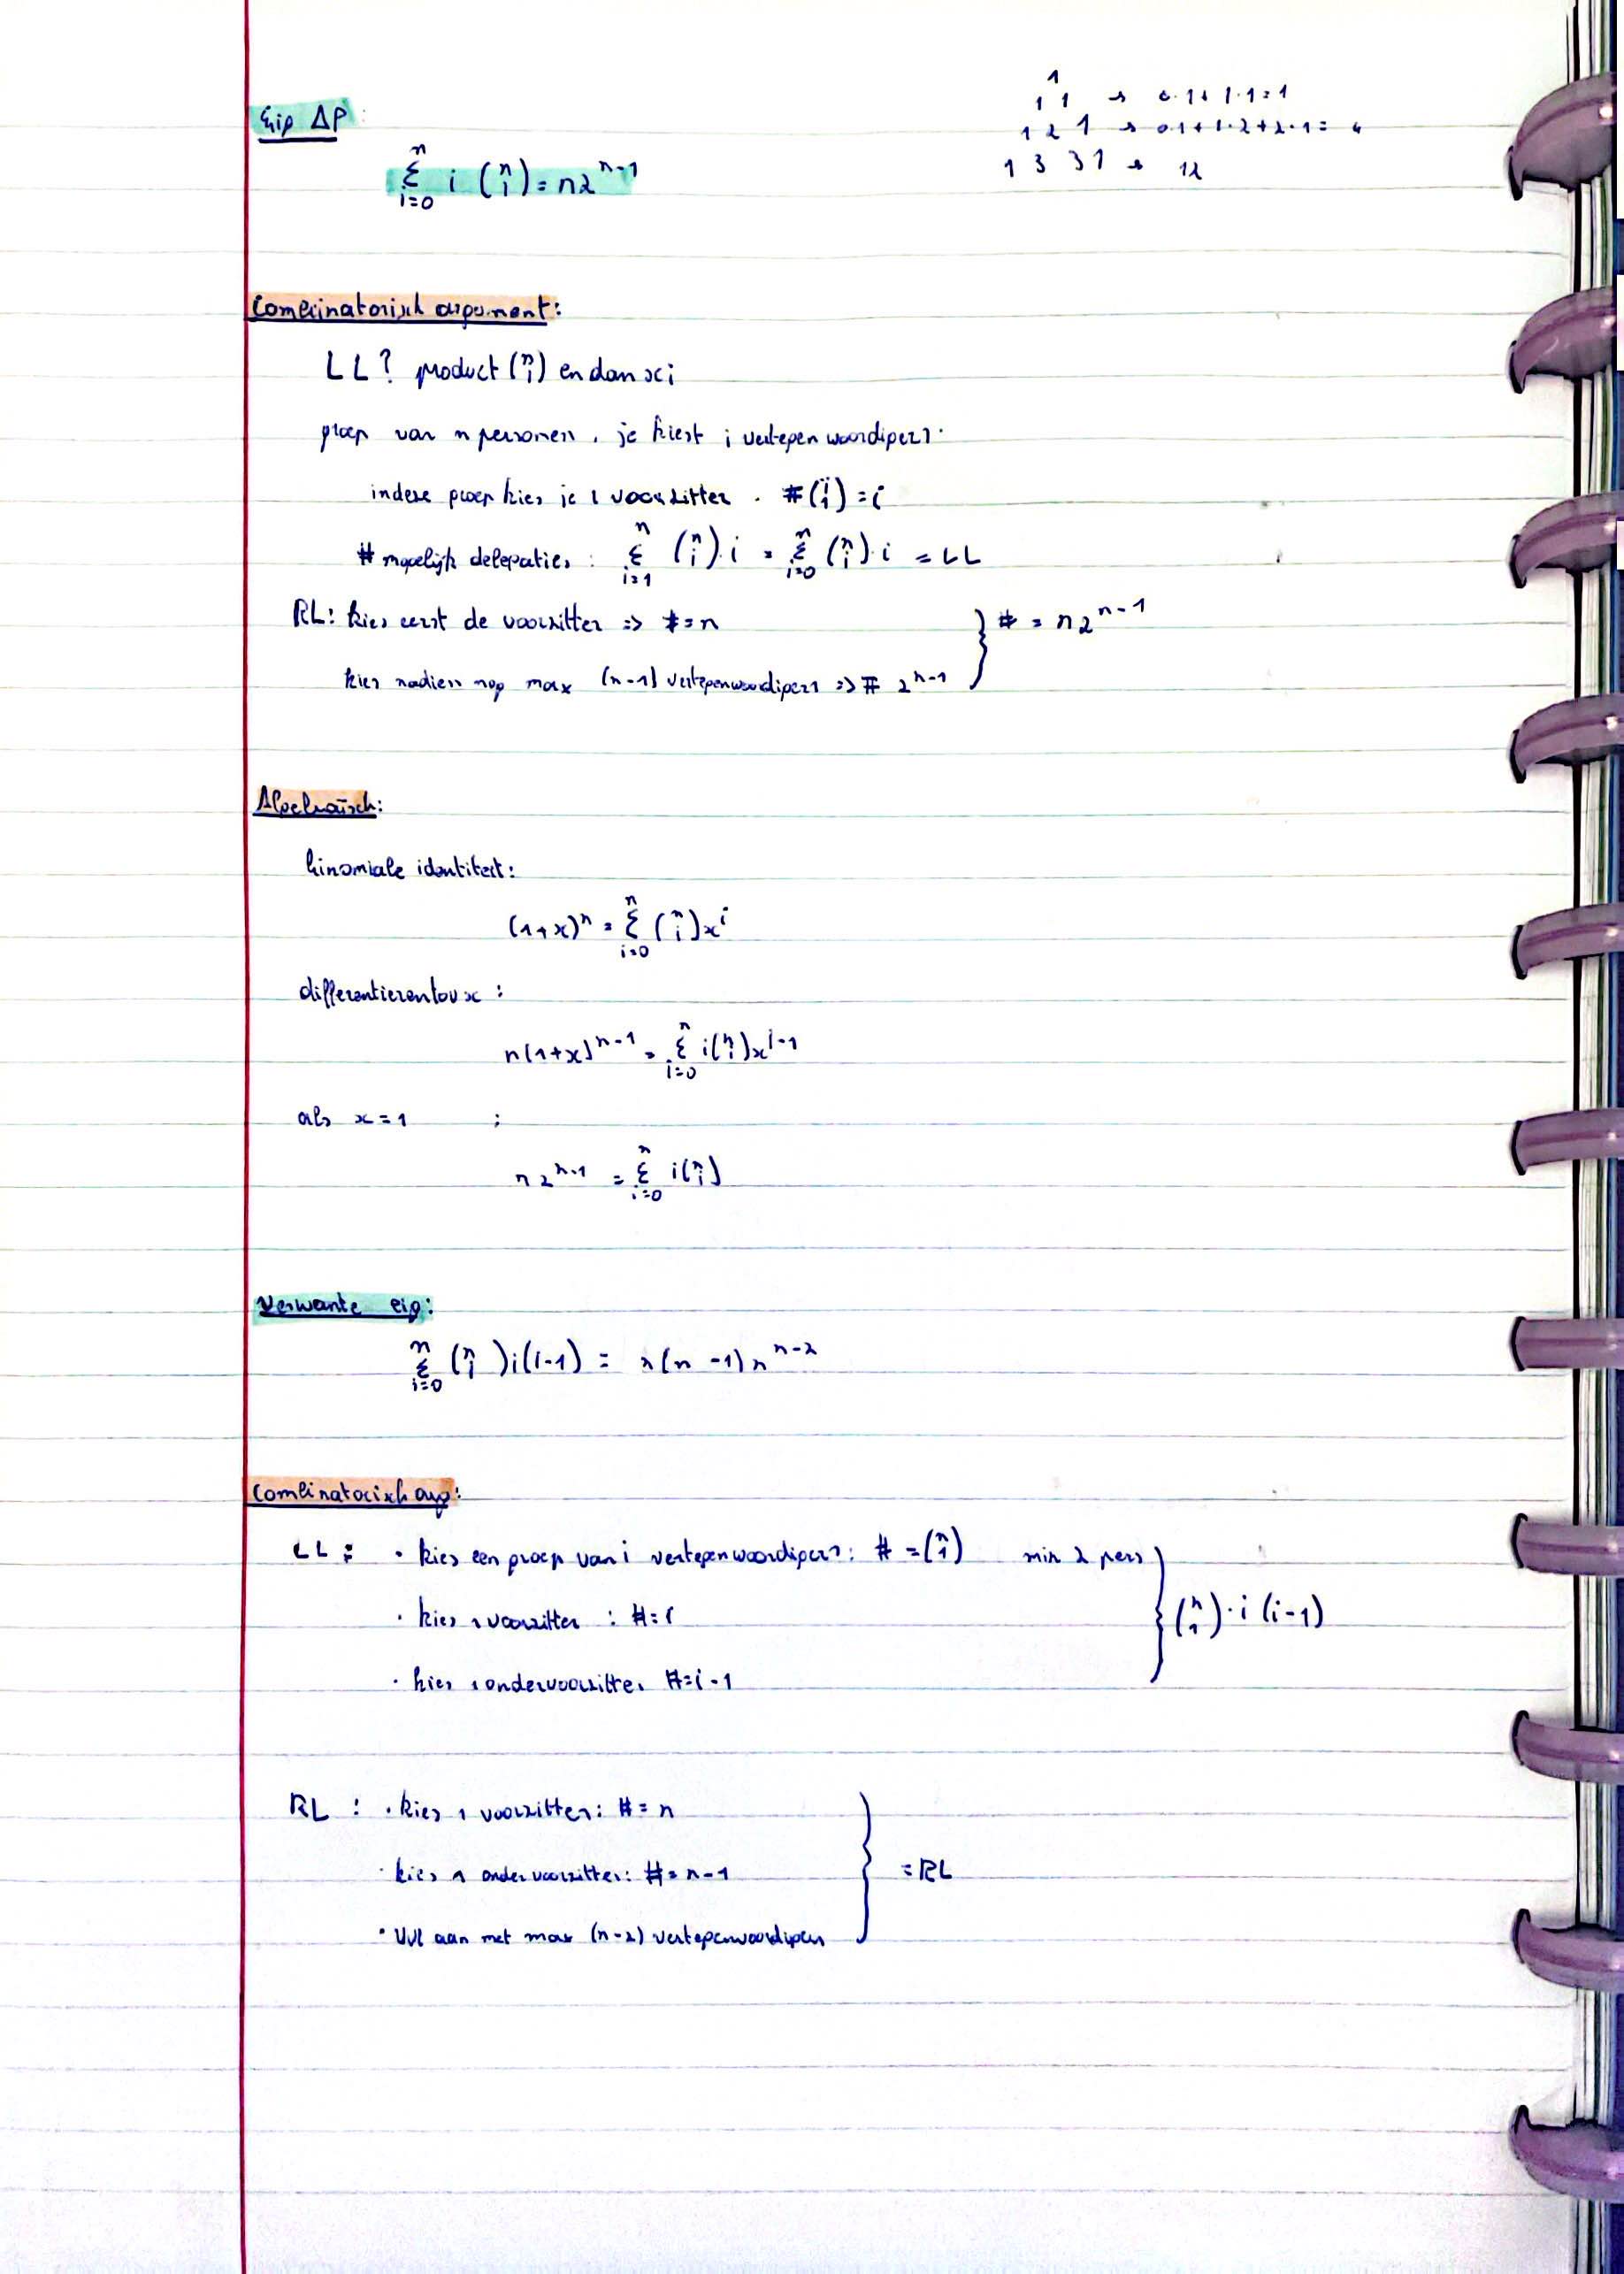 Eig ΔP:
1
1 1 → 0·1+1·1=1
1 2 1 → 0·1+1·2+2·1=4
1 3 3 1 → 12
∑_{i=0}^{n} i (n i) = n2^{n-1}
Combinatorisch argument:
LL? product (n i) en dan x i
groep van n personen, je kiest i vertegenwoordigers.
in deze groep kies je 1 voorzitter. #(i 1) = i
# mogelijk delegaties: ∑_{i=1}^{n} (n i)·i = ∑_{i=0}^{n} (n i)·i = LL
RL: kies eerst de voorzitter => # = n
kies nadien nog max (n-1) vertegenwoordigers => # 2^{n-1} } # = n2^{n-1}
Algebraïsch:
binomiale identiteit:
(1+x)^n = ∑_{i=0}^{n} (n i)x^i
differentiëren tov x:
n(1+x)^{n-1} = ∑_{i=0}^{n} i(n i)x^{i-1}
als x=1 :
n2^{n-1} = ∑_{i=0}^{n} i(n i)
Verwante eig:
∑_{i=0}^{n} (n i)i(i-1) = n(n-1)n^{n-2}
Combinatorisch arg:
LL: · kies een groep van i vertegenwoordigers: # = (n 1) min 2 pers
· kies 1 voorzitter : # = i } (n 1)·i(i-1)
· kies 1 ondervoorzitter # = i-1
RL : · kies 1 voorzitter: # = n
· kies 1 ondervoorzitter: # = n-1 } = RL
· Vul aan met max (n-2) vertegenwoordigers